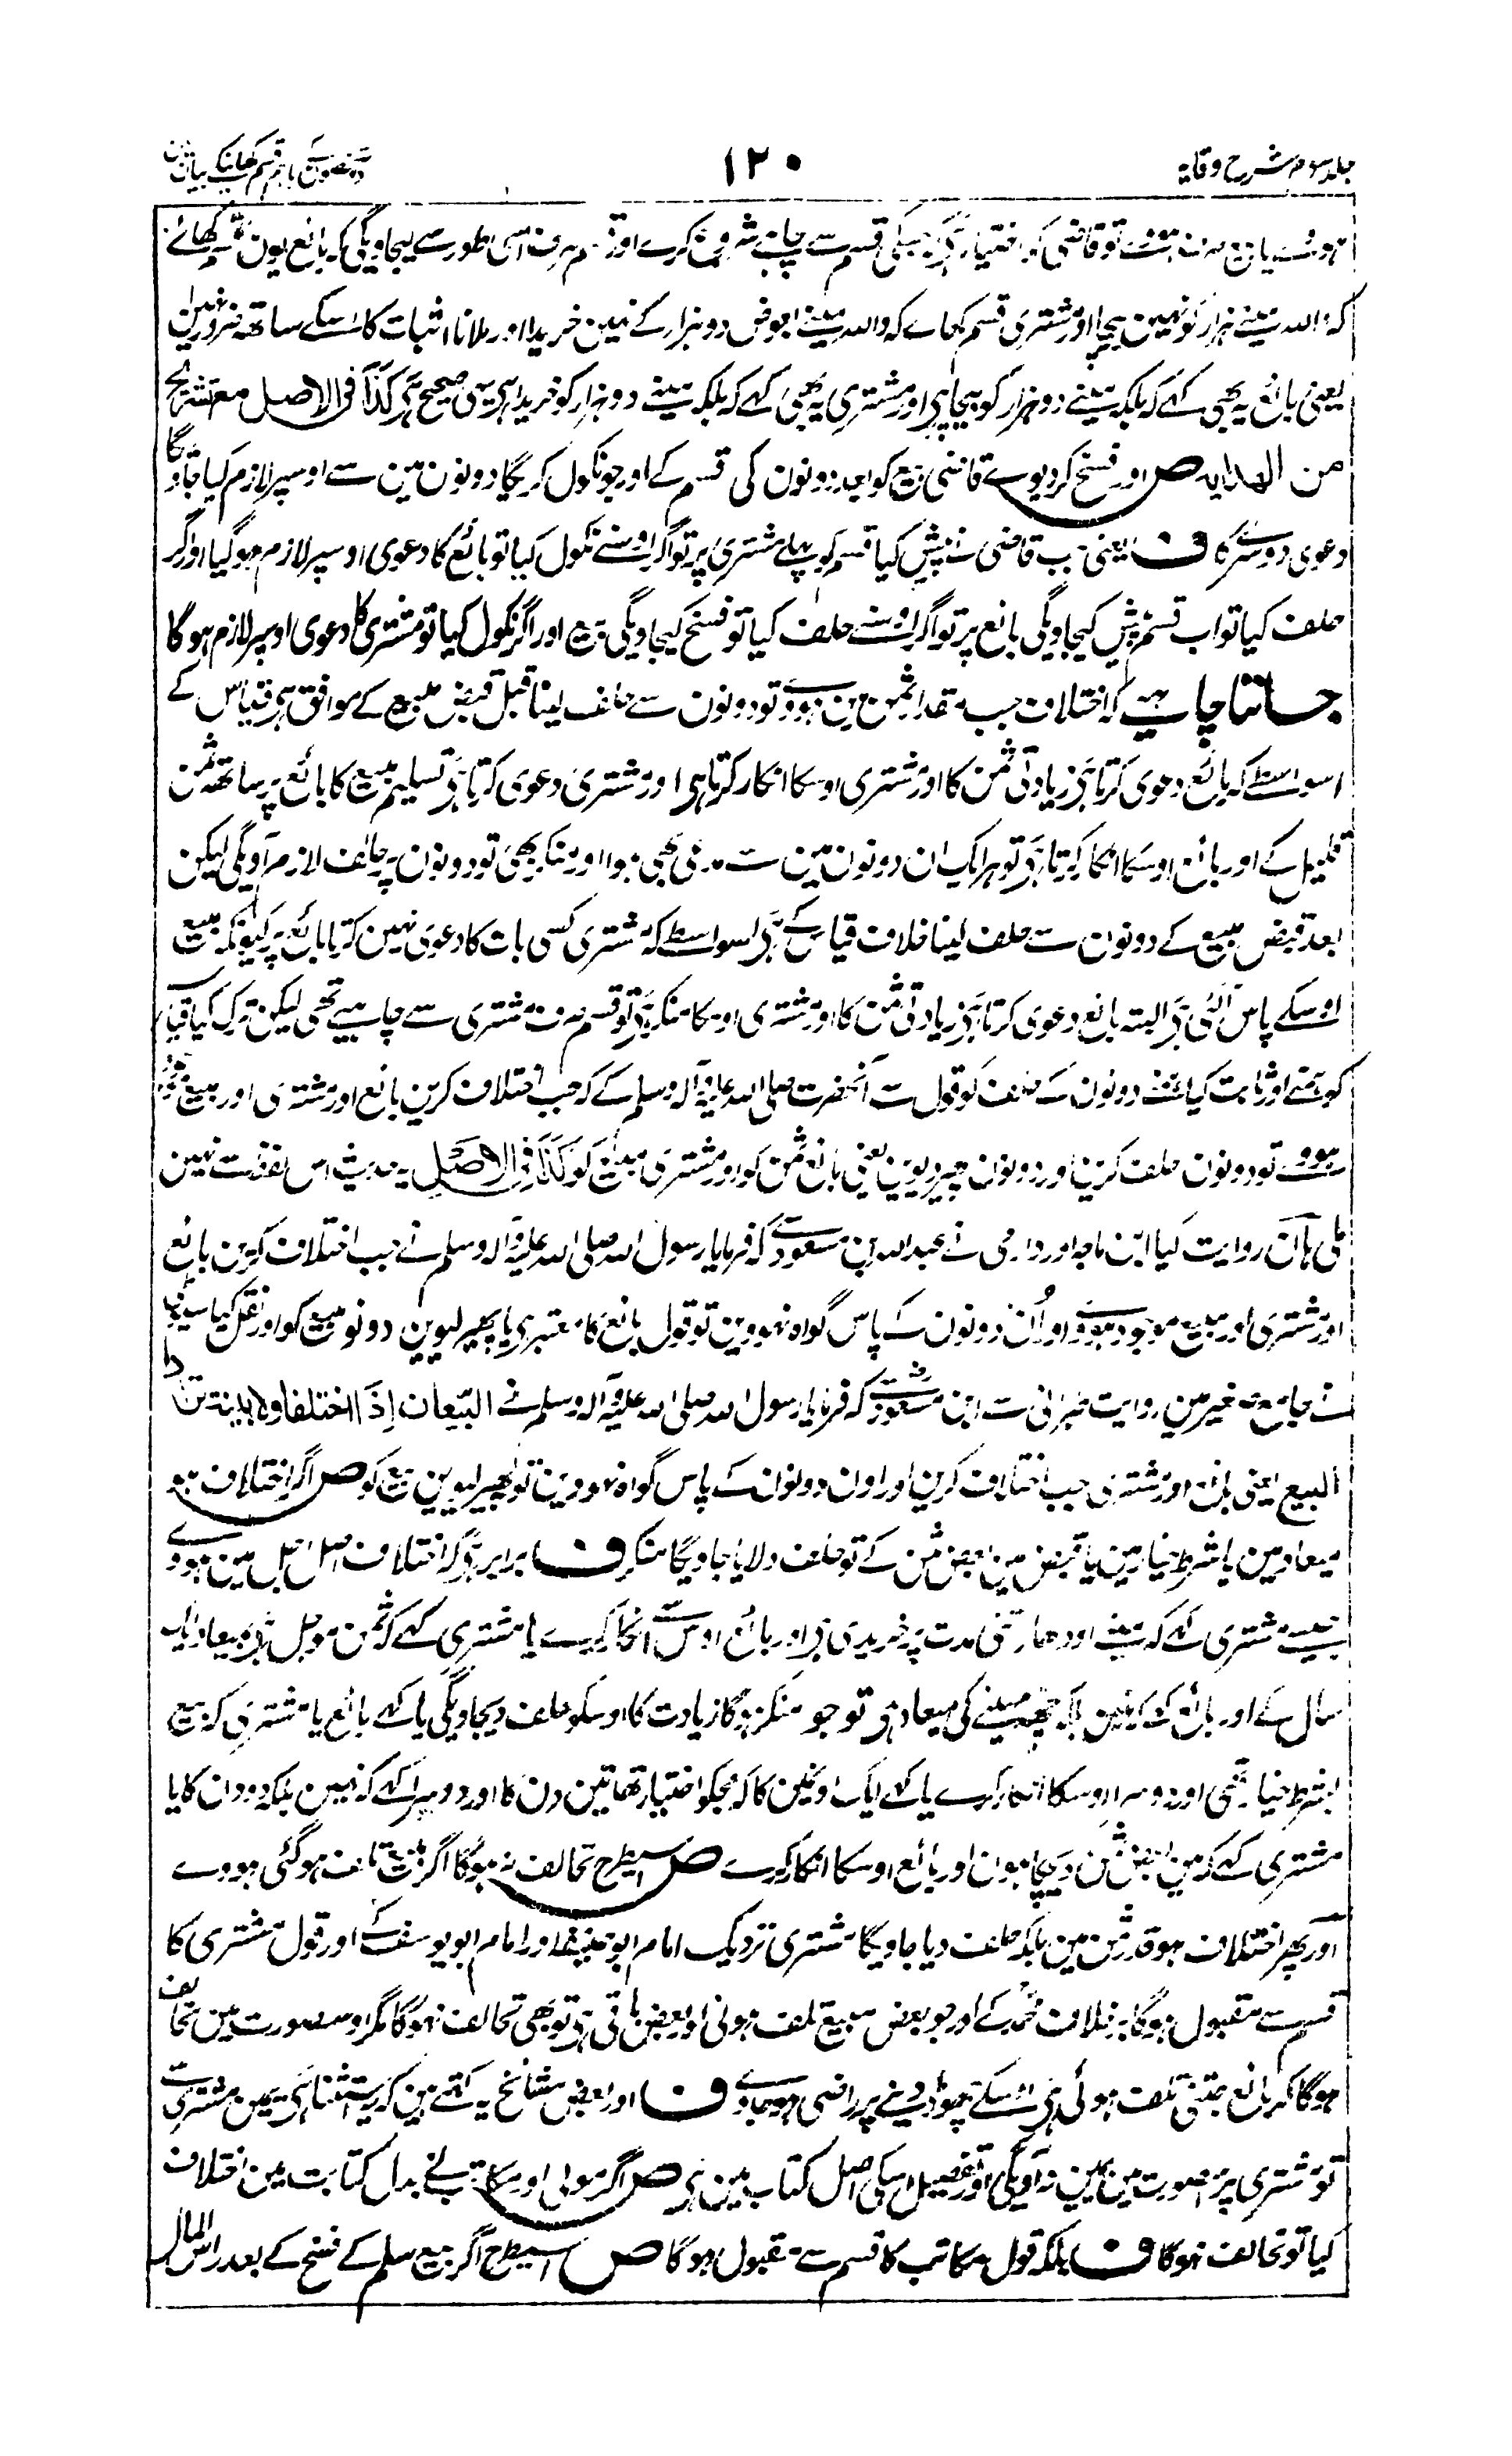 جلد سوم شرح وقایہ
۱۲۰
باہم قسم کھانیکے بیان
تو قاضی کو اختیار ہی جسکی قسم سے چاہے شروع کرے اور قسم صرف اسی طور سے لیجاویگی کہ بائع یون قسم کھائے
کہ واللہ مینے ہزار کو نہین بیچا اور مشتری قسم کھاے کہ واللہ مینے بعوض دو ہزار کے نہین خریدا اور ملانا اثبات کا اسکے ساتھ ضرور نہین
یعنی بائع یہ بھی کہے کہ بلکہ مینے دو ہزار کو بیچا ہی اور مشتری یہ بھی کہے کہ بلکہ مینے دو ہزار کو خریدا ہی یہی صحیح ہی کذا فی الاصل مع تشریح
من الهدایه ص اور فسخ کر دیوے قاضی بیع کو بعد دونون کی قسم کے اور جو نکول کریگا دونون مین سے اوسپر لازم کیا جاویگا
دعوی دوسرے کا ف یعنی جب قاضی نے پیش کیا قسم کو پہلے مشتری پر تو اگر اوسنے نکول کیا تو بائع کا دعوی اوسپر لازم ہو گیا اور اگر
حلف کیا تو اب قسم پیش کیجاویگی بائع پر تو اگر اوسنے حلف کیا تو فسخ کیجاویگی بیع اور اگر نکول کیا تو مشتری کا دعوی اوسپر لازم ہو گا
جاننا چاہیے کہ اختلاف جب مقدار ثمن مین ہووے تو دونون سے حلف لینا قبل قبض مبیع کے موافق ہی قیاس کے
اسواسطے کہ بائع دعوی کرتا ہی زیادتی ثمن کا اور مشتری اوسکا انکار کرتا ہی اور مشتری دعوی کرتا ہی تسلیم مبیع کا بائع پر ساتھ ثمن
قلیل کے اور بائع اوسکا انکار کرتا ہی تو ہر ایک ان دونون مین سے مدعی بھی ہوا اور منکر بھی تو دونون پر حلف لازم آویگی لیکن
بعد قبض مبیع کے دونون سے حلف لینا خلاف قیاس کے ہی اسواسطے کہ مشتری کسی بات کا دعوی نہین کرتا بائع پر کیونکہ مبیع
اوسکے پاس آگئی ہی البتہ بائع دعوی کرتا ہی زیادتی ثمن کا اور مشتری اوسکا منکر ہی تو قسم صرف مشتری سے چاہیے تھی لیکن ترک کیا قیاس
کو ہمنے اور ثابت کیا ہمنے دونون کے حلف کو قول سے آنحضرت صلی اللہ علیہ وآلہ وسلم کے کہ جب اختلاف کرین بائع اور مشتری اور مبیع
ہووے تو دونون حلف کرین اور دونون پھیر دیوین یعنی بائع ثمن کو اور مشتری مبیع کو کذا فی الاصل یہ حدیث اس لفظ سے نہین
ملی ہان روایت کیا ابن ماجہ اور دارمی نے عبد اللہ بن مسعود سے کہ فرمایا رسول اللہ صلی اللہ علیہ وآلہ وسلم نے جب اختلاف کرین بائع
اور مشتری اور مبیع موجود ہووے اور اُن دونون کے پاس گواہ نہووین تو قول بائع کا معتبر ہی یا پھیر لیوین دونو مبیع کو اور نقل کیا
نے جامع صغیر مین روایت طبرانی سے ابن مسعود سے کہ فرمایا رسول اللہ صلی اللہ علیہ وآلہ وسلم نے البیّعان اِذَا اختلفا ولا بینة
البیع یعنی بائع اور مشتری جب اختلاف کرین اور اون دونون کے پاس گواہ نہووین تو پھیر لیوین بیع کو ص اگر اختلاف ہو
میعاد مین یا شرط خیار مین یا قبض مین بعض ثمن کے تو حلف دلایا جاویگا منکر ف برابر ہی کہ اختلاف اصل اجل مین ہووے
جیسے مشتری کہے کہ مینے اودھار اتنی مدت پر خریدی ہی اور بائع اوسے انکار کرے یا مشتری کہے کہ ثمن موجل ہی بمیعاد ایک
سال کے اور بائع کہے کہ نہین بلکہ چھ مہینے کی میعاد ہی تو جو منکر ہوگا زیادت کا اوسکو حلف دیجاویگی یا کہے بائع یا مشتری کہ بیع
بشرط خیار تھی اور دوسرا اوسکا انکار کرے یا کہے ایک اونمین کا کہ مجکو اختیار تھا تین دن کا اور دوسرا کہے کہ نہین بلکہ دو دن کا یا
مشتری کہے کہ مین بعض ثمن دیچکا ہون اور بائع اوسکا انکار کرے ص اسیطرح تحالف نہ ہوگا اگر مبیع تلف ہو گئی ہووے
اور پھر اختلاف ہو قدر ثمن مین بلکہ حلف دیا جاویگا مشتری نزدیک امام ابو حنیفہ اور امام ابو یوسف کے اور قول مشتری کا
قسم سے مقبول ہوگا بخلاف محمد کے اور جو بعض مبیع تلف ہوئی اور بعض باقی ہی تو بھی تحالف نہوگا مگر اوس صورت مین تحالف
ہوگا کہ بائع جتنی تلف ہوئی ہی اوسکے چھوڑ دینے پر راضی ہو جاوے ف اور بعض مشائخ یہ کہتے ہین کہ یہ استثنا ہی یمین مشتری سے
تو مشتری پر اس صورت مین یمین نہ آویگی اور تفصیل اسکی اصل کتاب مین ہی ص اگر مولی اور مکاتب نے بدل کتابت مین اختلاف
کیا تو تحالف نہوگا ف بلکہ قول مکاتب کا قسم سے مقبول ہوگا ص اسیطرح اگر بیع سلم کے فسخ کے بعد راس المال